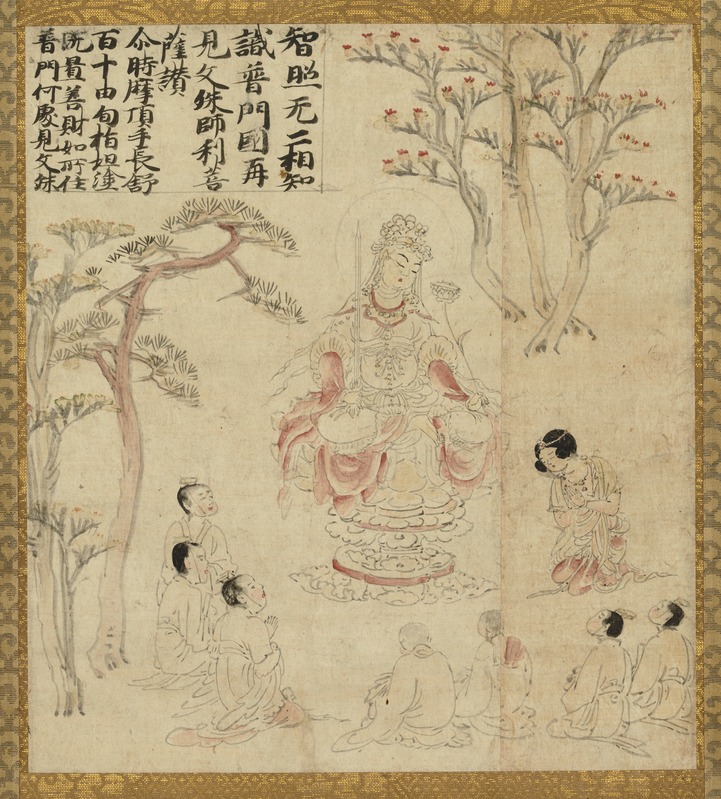 智照无二相知
識普門國再
見文殊師利菩
薩讃
尒時摩頂手長舒
百十由旬栢坦塗
无量善財如所住
普門何處見文殊